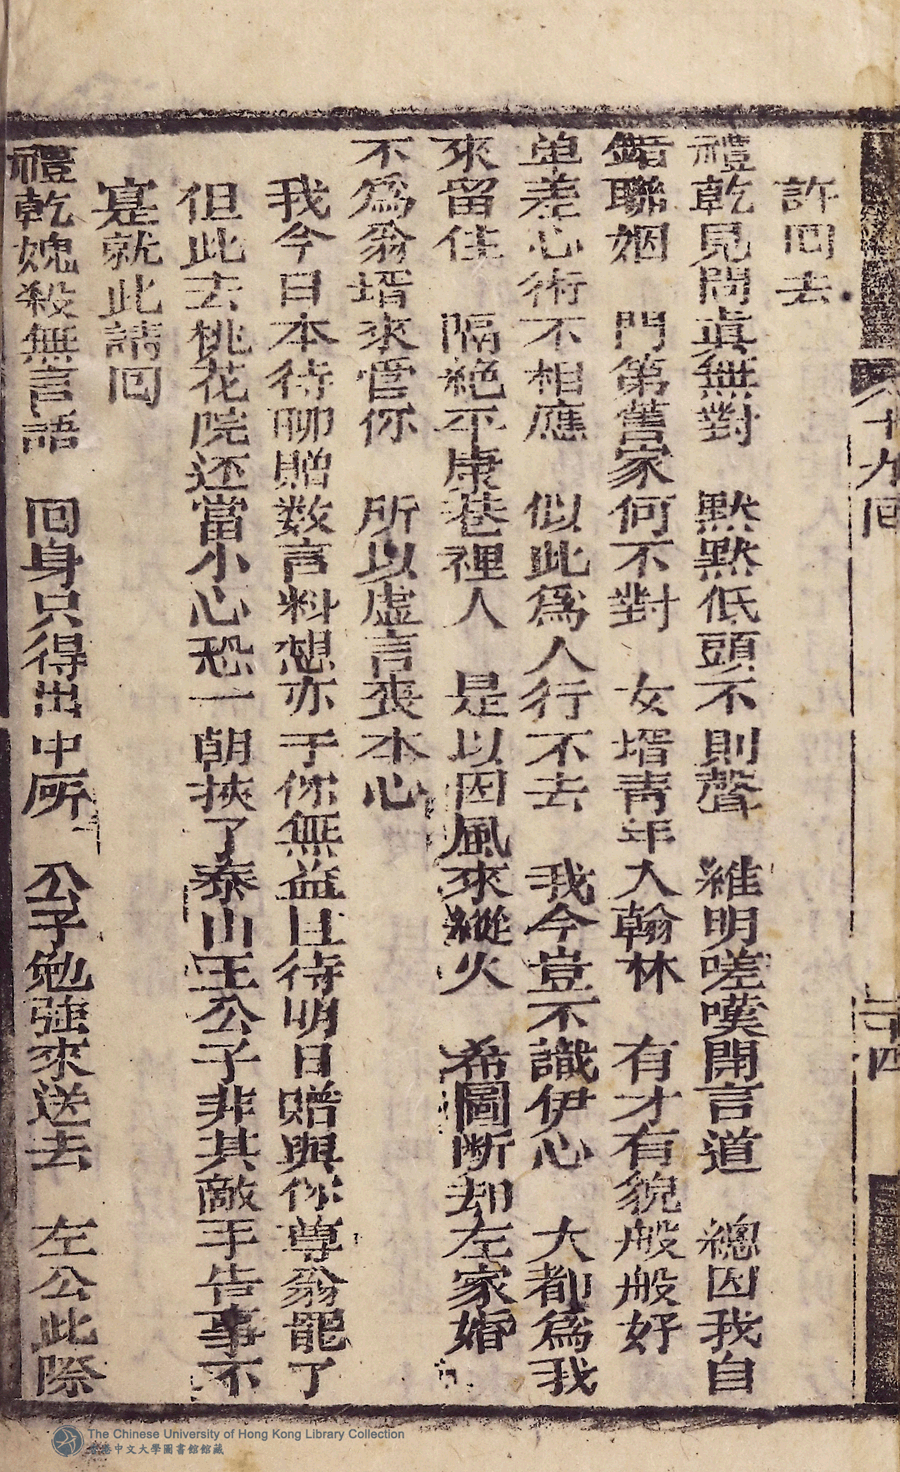 十九回
二十四
許回去
禮乾見問真無對　默默低頭不則聲　維明嗟嘆開言道　總因我自
錯聯姻　門第舊家何不對　女壻靑年入翰林　有才有貌般般好
单差心術不相應　似此爲人行不去　我今豈不識伊心　大都爲我
來留住　隔絶平康巷裡人　是以因風來縱火　希圖断却左家婚
不爲翁壻來管你　所以虛言喪本心
我今日本待聊贈数言料想亦于你無益且待明日贈與你尊翁罷了
但此去桃花院还當小心恐一朝挾了泰山王公子非其敵手告事不
寔就此請回
禮乾媿殺無言語　回身只得出中所　公子勉强來送去　左公此際
The Chinese University of Hong Kong Library Collection
香港中文大學圖書館館藏